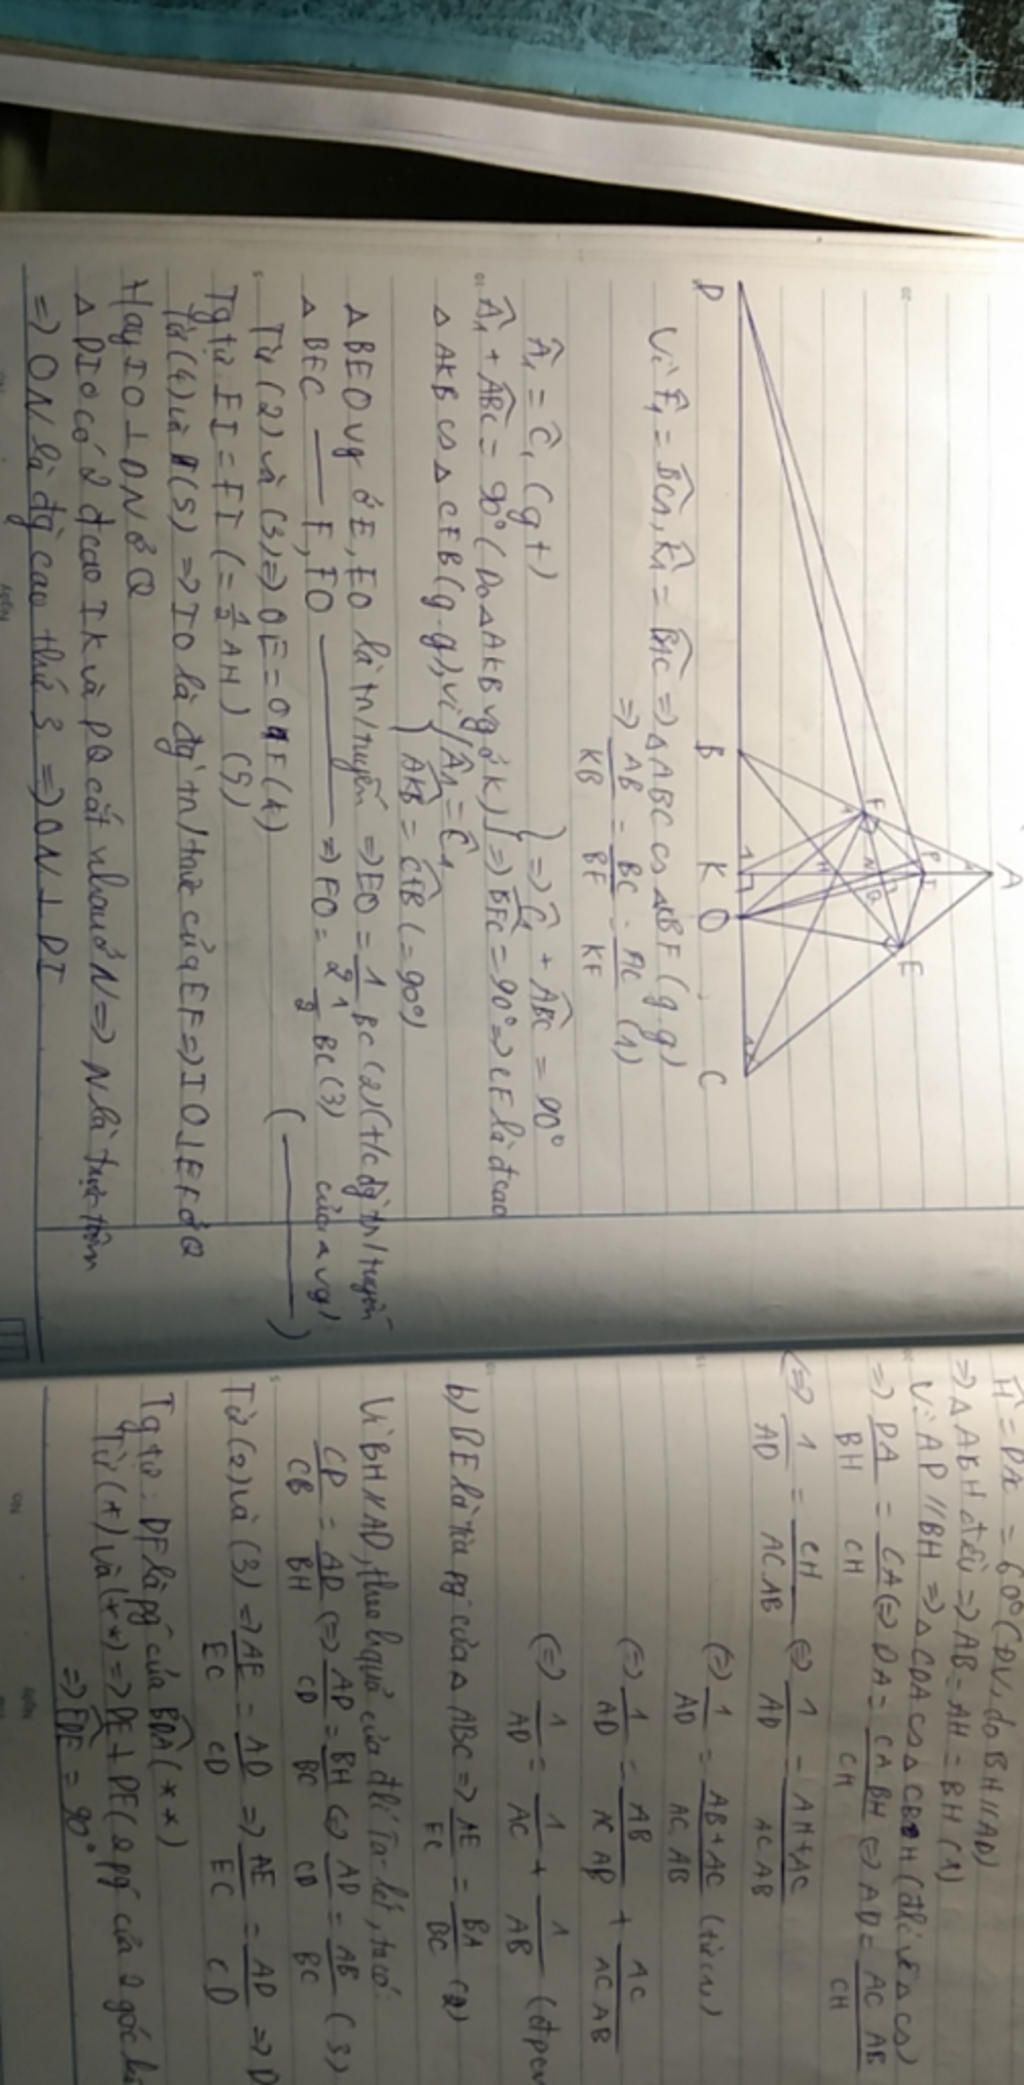 A
F
P
I
E
N
Q
H
D
B
K
O
C
Vì F̂₁ = BĈA, K̂₁ = BÂC => △ABC ∽ △KBF (g.g)
=> AB/KB = BC/BF = AC/KF (1)
Â₁ = Ĉ₁ (gt)
Â₁ + ABC = 90° (Do △AKB vg ở K) } => Ĉ₁ + ABC = 90°
=> BFC = 90° => CF là đcao
△AKB ∽ △CFB (g.g), vì { Â₁ = Ĉ₁
AKB = CFB (= 90°)
△BEC vg ở E, EO là tn/tuyến => EO = 1/2 BC (2) (t/c đg tr/tuyến
△BFC — F, FO — => FO = 1/2 BC (3) của △ vg)
Từ (2) và (3) => OE = OF (4) ( — )
Tg tự EI = FI (= 1/2 AH) (5)
Từ (4) và (5) => IO là đg tr/trực của EF => IO ⊥ EF ở Q
Hay IO ⊥ DN ở Q
△DIO có 2 đcao IK và DQ cắt nhau ở N => N là trực tâm
=> ON là đg cao thứ 3 => ON ⊥ DI
= 60° (ĐV, do BH // AD)
=> △ABH đều => AB = AH = BH (1)
Vì AD // BH => △CDA ∽ △CBH (đlí về △ ∽)
=> DA/BH = CA/CH <=> DA = CA.BH/CH <=> AD = AC.AB/CH
<=> 1/AD = CH/AC.AB <=> 1/AD = AH+AC/AC.AB
<=> 1/AD = AB+AC/AC.AB (từ (1))
<=> 1/AD = AB/AC.AB + AC/AC.AB
<=> 1/AD = 1/AC + 1/AB (đpcm
b) BE là tia pg của △ABC => AE/EC = BA/BC (2)
Vì BH // AD, theo hệ quả của đlí Ta-lét, ta có
CD/CB = AD/BH <=> AD/CD = BH/BC <=> AD/CD = AB/BC (3)
Từ (2) và (3) => AE/EC = AD/CD => AE/EC = AD/CD => D
Tg tự: DF là pg của BDA (**)
Từ (*) và (**) => DE ⊥ DF (2 pg của 2 góc kề
=> FDE = 90°